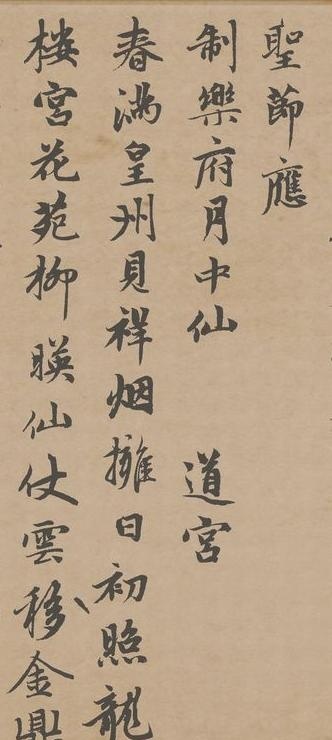 聖節應
制樂府月中仙 道宮
春滿皇州見祥烟擁日初照龍
樓宮花苑柳暎仙仗雲移金鼎